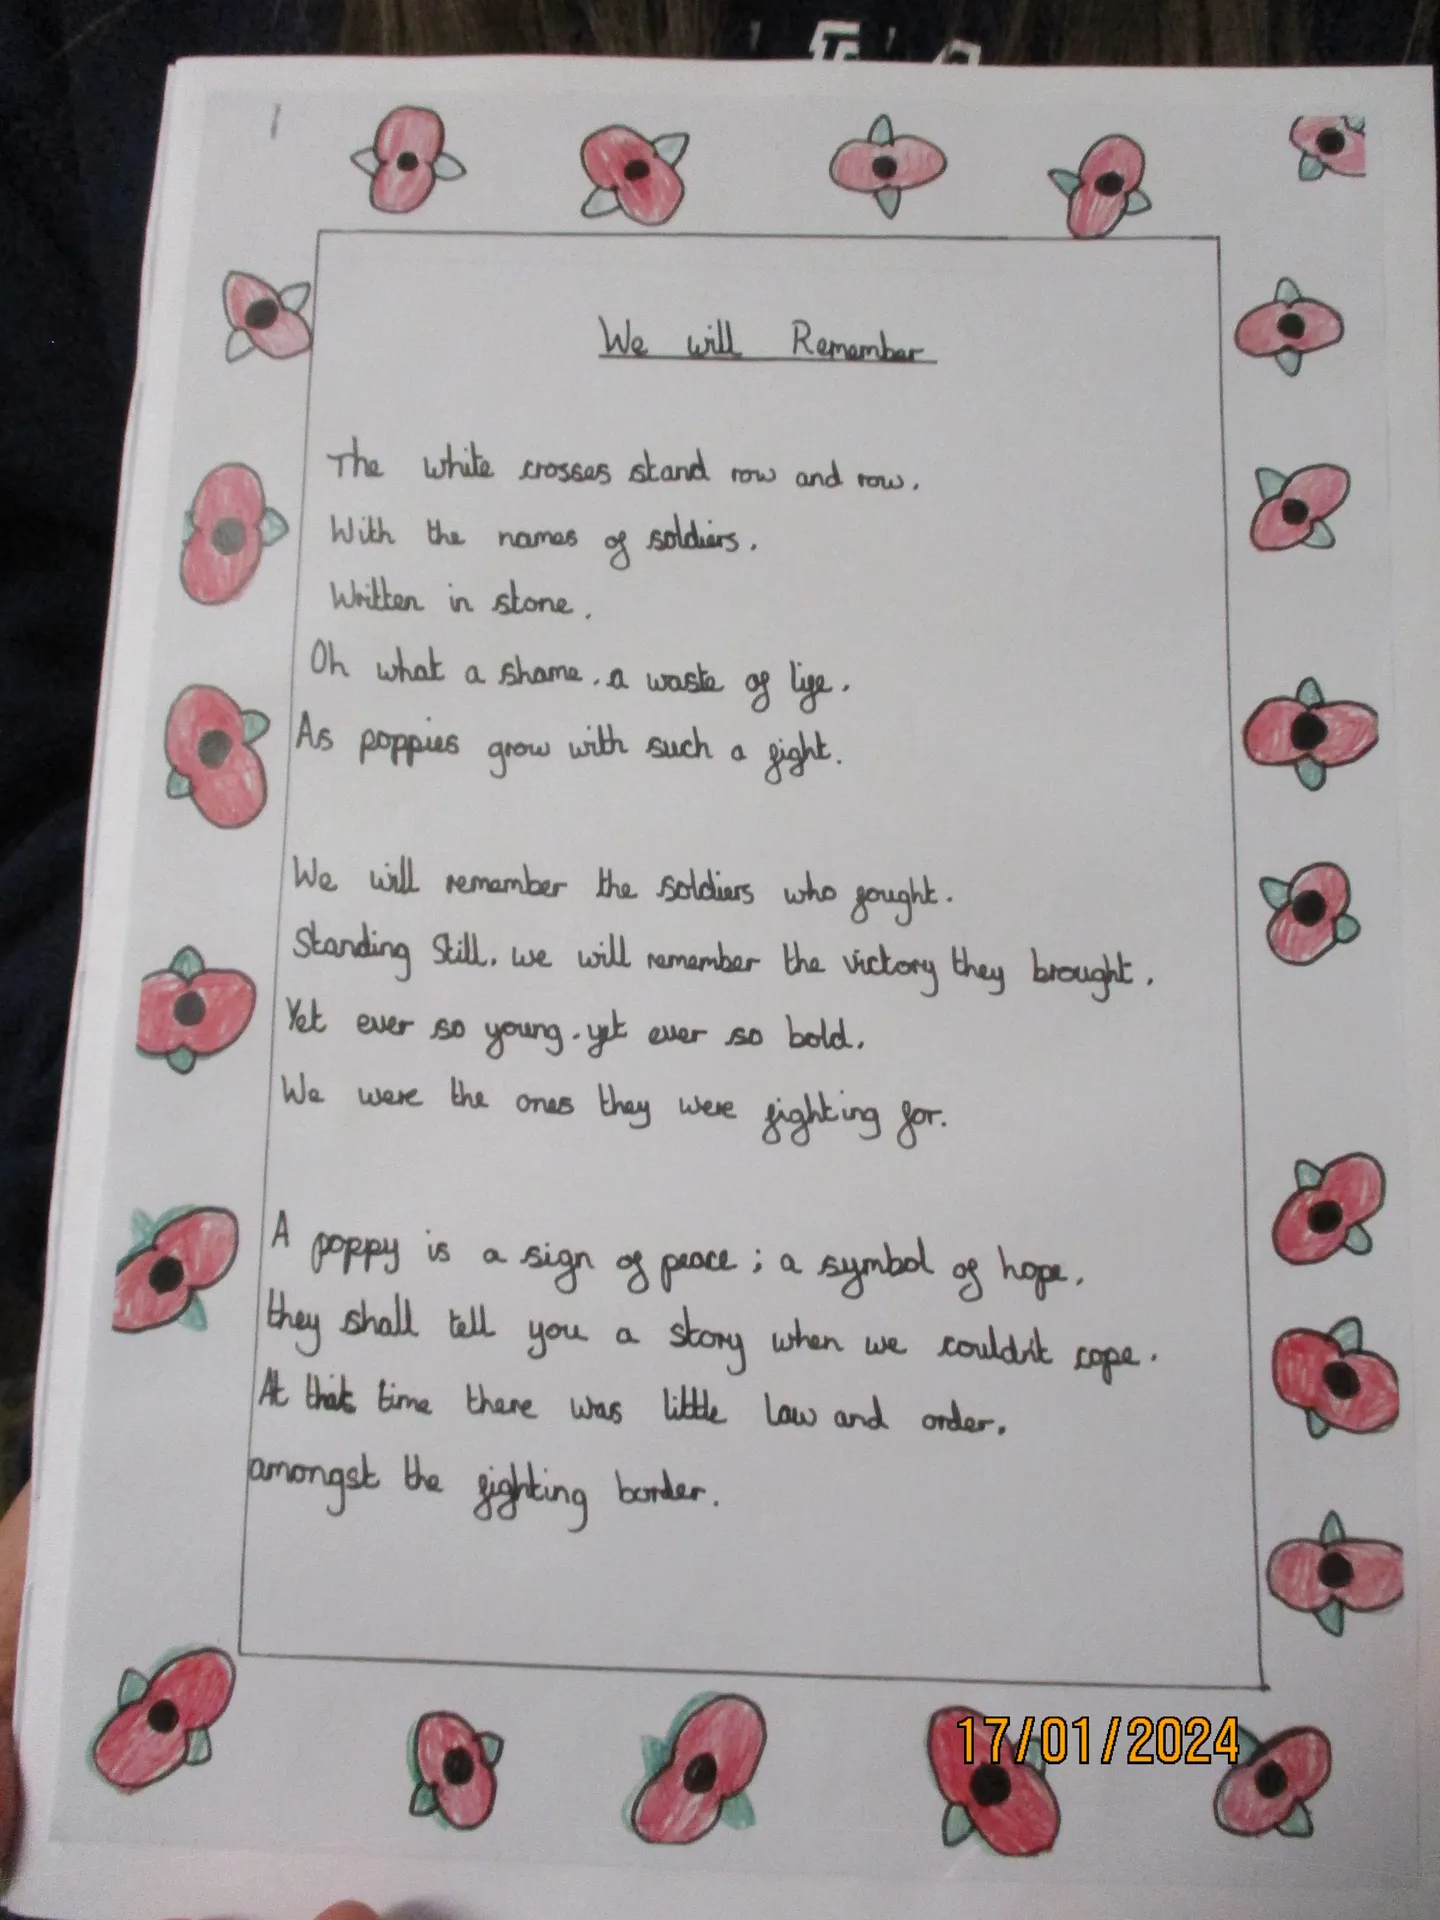 We will Remember
The white crosses stand row and row.
With the names of soldiers.
Written in stone.
Oh what a shame, a waste of life.
As poppies grow with such a fight.
We will remember the soldiers who fought.
Standing Still, we will remember the victory they brought.
Yet ever so young, yet ever so bold.
We were the ones they were fighting for.
A poppy is a sign of peace; a symbol of hope,
they shall tell you a story when we couldn't cope.
At that time there was little law and order,
amongst the fighting border.
17/01/2024